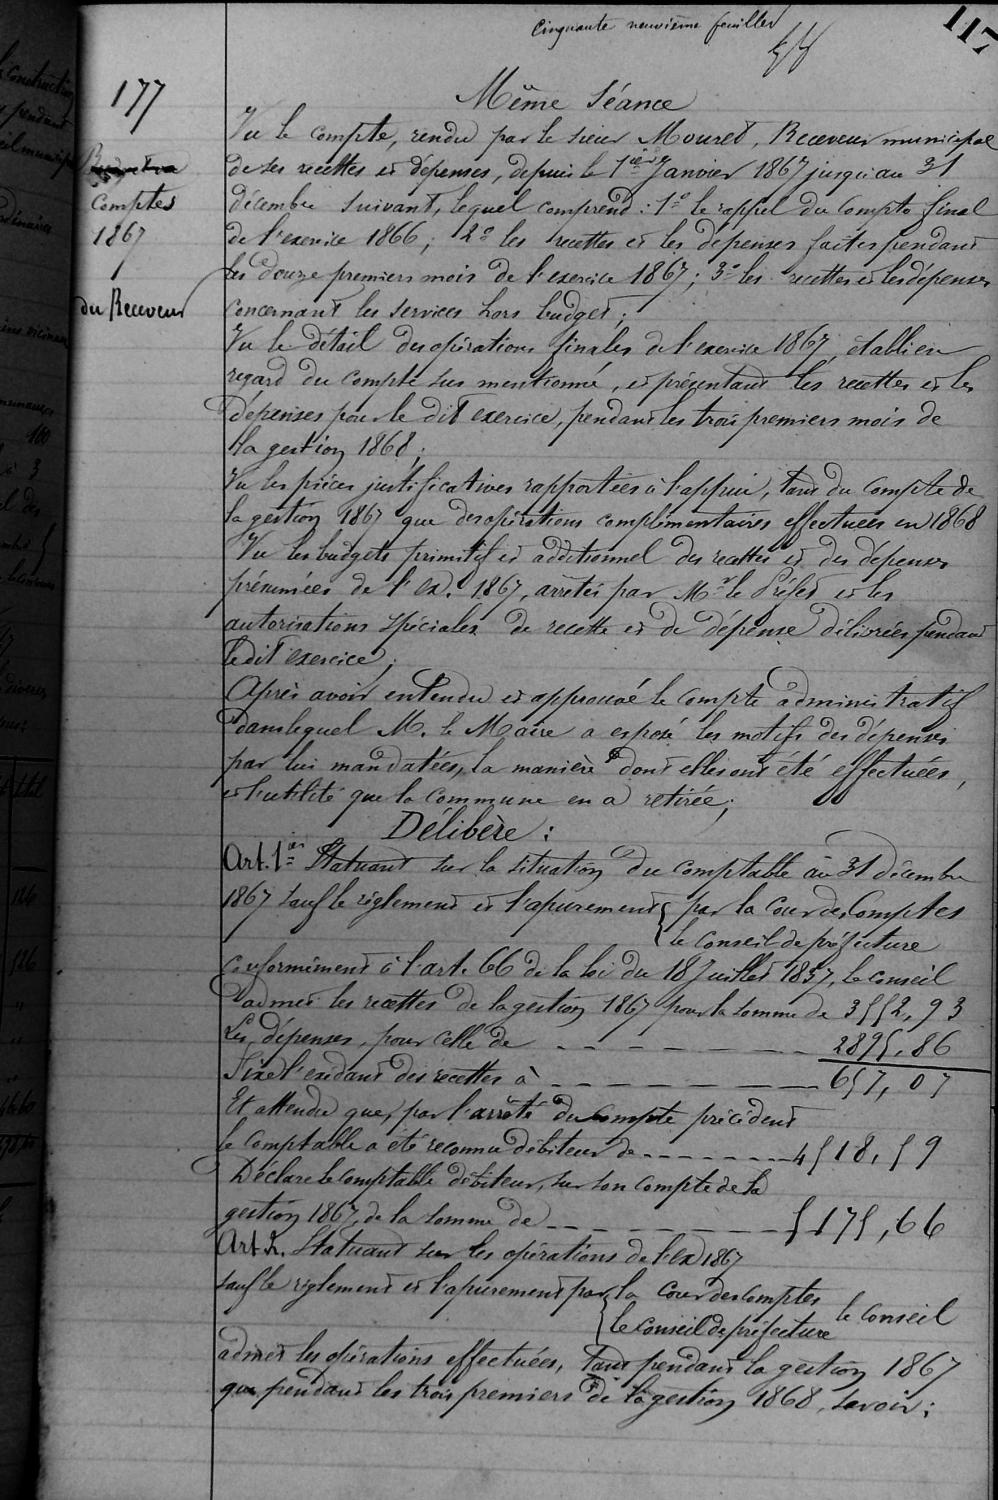 Cinquante neuvième feuillet
117
177
Comptes
1867
du Receveur
Même Séance
Vu le compte, rendu par le sieur Mouret, Receveur municipal
de ses recettes et dépenses, depuis le 1ier Janvier 1867 jusqu'au 31
décembre suivant, lequel comprend : 1º le rappel du compte final
de l'exercice 1866 ; 2º les recettes et les dépenses faites pendant
les douze premiers mois de l'exercice 1867 ; 3º les recettes et les dépenses
concernant les services hors budget ;
Vu le détail des opérations finales de l'exercice 1867, établi en
regard du compte sus mentionné, et présentant les recettes et les
dépenses pour le dit exercice, pendant les trois premiers mois de
la gestion 1868 ;
Vu les pièces justificatives rapportées à l'appui, tant du compte de
la gestion 1867 que des opérations complémentaires effectuées en 1868
Vu les budgets primitif et additionnel des recettes et des dépenses
présumées de l'ex. 1867, arrêtés par Mr le Préfet et les
autorisations spéciales de recette et de dépense délivrées pendant
ledit exercice ;
Après avoir entendu et approuvé le compte administratif
dans lequel M. le Maire a exposé les motifs des dépenses
par lui mandatées, la manière dont elles ont été effectuées,
et l'utilité que la commune en a retirée ;
Délibère :
Art. 1er Statuant sur la situation du comptable au 31 décembre
1867 sauf le règlement et l'apurement { par la Cour des Comptes
le Conseil de préfecture
conformément à l'art. 66 de la loi du 18 Juillet 1837, le conseil
admet les recettes de la gestion 1867 pour la somme de 3552,93
Les dépenses, pour celle de 2895,86
Fixe l'excédant des recettes à 657,07
Et attendu que, par l'arrêté du compte précédent
le comptable a été reconnu débiteur de 4518,59
Déclare le comptable débiteur, sur son compte de la
gestion 1867, de la somme de 5175,66
Art. 2. Statuant sur les opérations de l'ex 1867
sauf le règlement et l'apurement par { la Cour des comptes
le Conseil de préfecture le Conseil
admet les opérations effectuées, tant pendant la gestion 1867
que pendant les trois premiers de la gestion 1868, savoir :